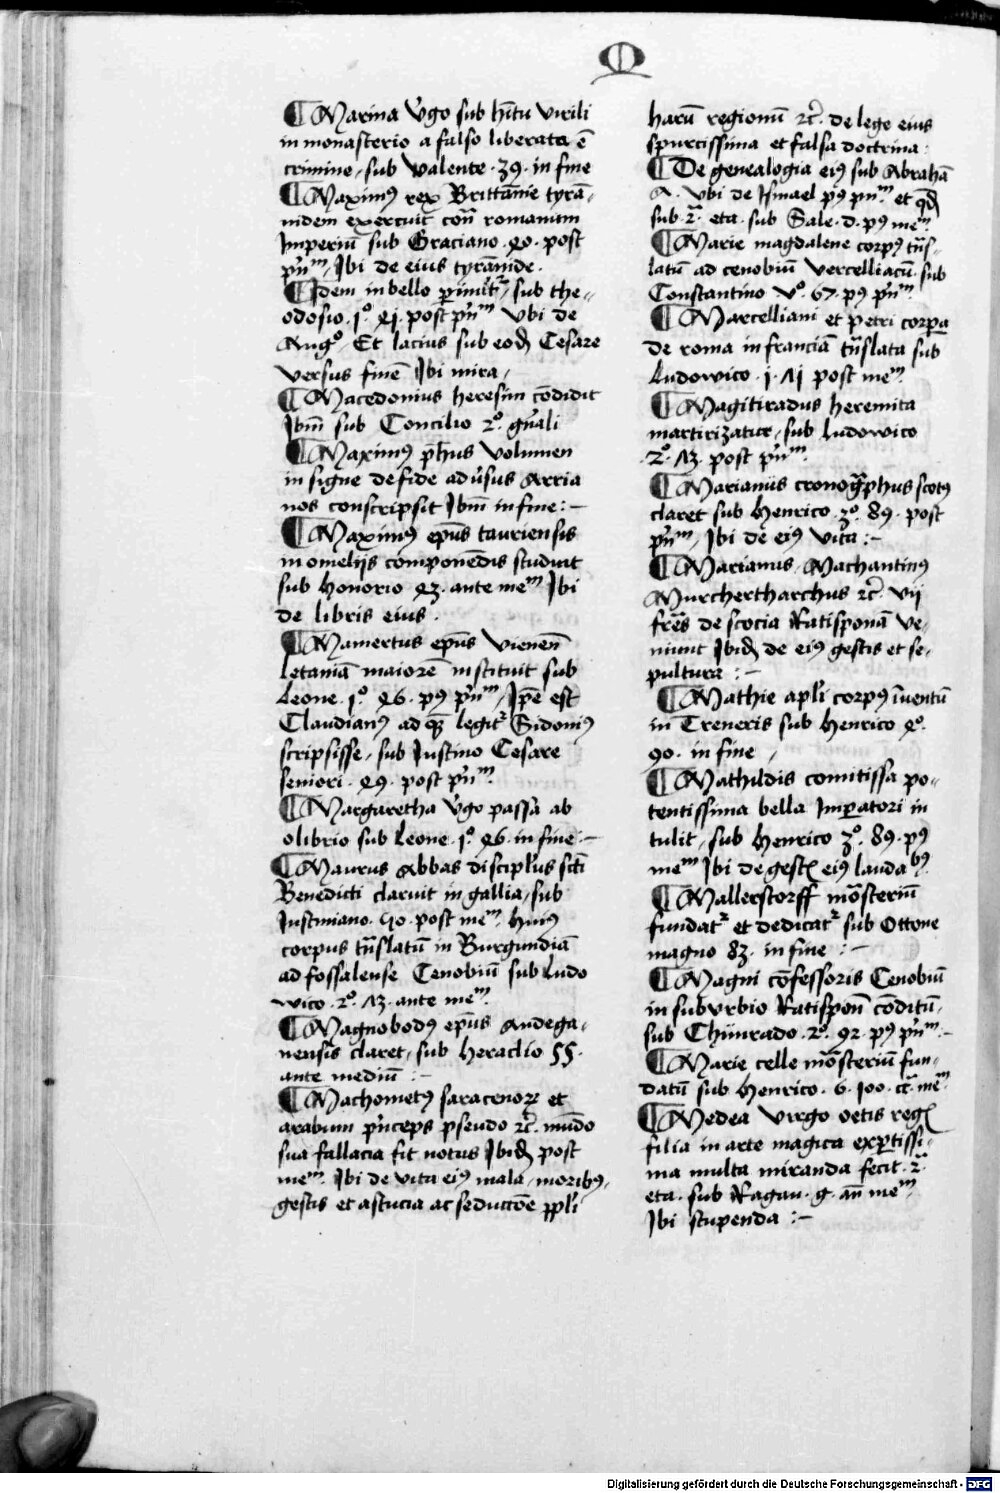 M
¶ Marina v̓go sub hītu virili
in monasterio a falso liberata ē
crimine, sub valente · 39 · in fine
¶ Maximꝰ rex Brittānie tyrā-
nidem exercuit cont̄ romanum
Imperiū sub Graciano · 40 · post
prn̄m, Ibi de eius tyrānide ·
¶ Idem in bello ꝑimit̄, sub the-
odosio · jº · 41 · post prn̄m Vbi de
Augº, Et lacius sub eod̄ Cesare
versus finē Ibi mira,
¶ Macedonius heresim cōdidit
Ibm̄ sub Concilio 2º gn̄ali
¶ Maximꝰ ph̄us volumen
insigne de fide adv̓sus Arria
nos conscripsit Ibm̄ in fine :-
¶ Maximꝰ ep̄us tauriensis
in omelijs componēdis studuit
sub honorio 43 · ante mem̄ Ibi
de libris eius ·
¶ Mamertus ep̄us vienen̄
letaniā maiorē instituit sub
Leone · jº · 46 · pꝰ prn̄m, Ip̄e est
Claudianꝰ ad quē legit̄ Sidoniꝰ
scripsisse, sub Iustino Cesare
seniori · 49 · post prn̄m
¶ Margaretha v̓go passa ab
olibrio sub Leone · jº · 46 · in fine :-
¶ Maurus Abbas discipl̄us sc̄ti
Benedicti claruit in gallia, sub
Iustiniano · 50 · post mem̄ · huius
corpus trn̄slatū in Burgundiā
ad fossalense Cenobiū sub Ludo
wico · 2º · 73 · ante mem̄ ·
¶ Magnobodꝰ ep̄us Andega-
nensis claret, sub heraclio 55 ·
ante mediū :-
¶ Machometꝰ saracenoꝝ et
arabum prn̄ceps pseudo ꝛc̄ · mūdo
sua fallacia fit notus Ibid̄ post
mem̄ · Ibi de vita eiꝰ mala, moribꝰ,
gestis et astucia ac seductōe ppl̄i
harū regionū ꝛc̄ · de lege eius
spurcissima et falsa doctrina ·
¶ De genealogia eiꝰ sub Abrahā
A · vbi de Ismael pꝰ prn̄m et qd̄
sub · 2ª · eta · sub Sale · d · pꝰ mem̄
¶ Marie magdalene corpꝰ trn̄s-
latū ad cenobiū vercelliacū · sub
Constantino vº · 67 · pꝰ prn̄m
¶ Marcelliani et petri corpora
de roma in franciā trn̄slata sub
Ludowico · j · 71 post mem̄
¶ Magitiradus heremita
martirizatur, sub Ludowico
· 2º · 73 · post prn̄m
¶ Marianus cronogr̄phus scotꝰ
claret sub Henrico · 3º · 89 · post
prn̄m, Ibi de eiꝰ vita :-
¶ Marianus, Machantinꝰ
Murchertharchus ꝛc̄ vij
frēs de scocia Ratisponā ve-
niunt Ibid̄ de eiꝰ gestis et se-
pultura :-
¶ Mathie apl̄i corpꝰ īuentū
in Treneris sub Henrico 4º ·
90 · in fine ,
¶ Mathildis comitissa po-
tentissima bella Imꝑatori in
tulit, sub Henrico 3º · 89 · pꝰ
mem̄ Ibi de gestis eiꝰ laudabꝰ
¶ Mallerstorff mōsteriū
fundat̄ et dedicat̄ sub Ottone
magno 83 · in fine :-
¶ Magni cōfessoris Cenobiū
in subvrbio Ratispon̄ cōditū,
sub Chūnrado · 2º · 92 · pꝰ prn̄m :-
¶ Marie celle mōsteriū fun-
datū sub Henrico · 6 · 100 · cc̄ · mem̄
¶ Medea virgo oetis regis
filia in arte magica exꝑtissi-
ma multa miranda fecit · 2ª ·
eta · sub Ragau · g · an̄ mem̄,
Ibi stupenda :-
Digitalisierung gefördert durch die Deutsche Forschungsgemeinschaft - DFG